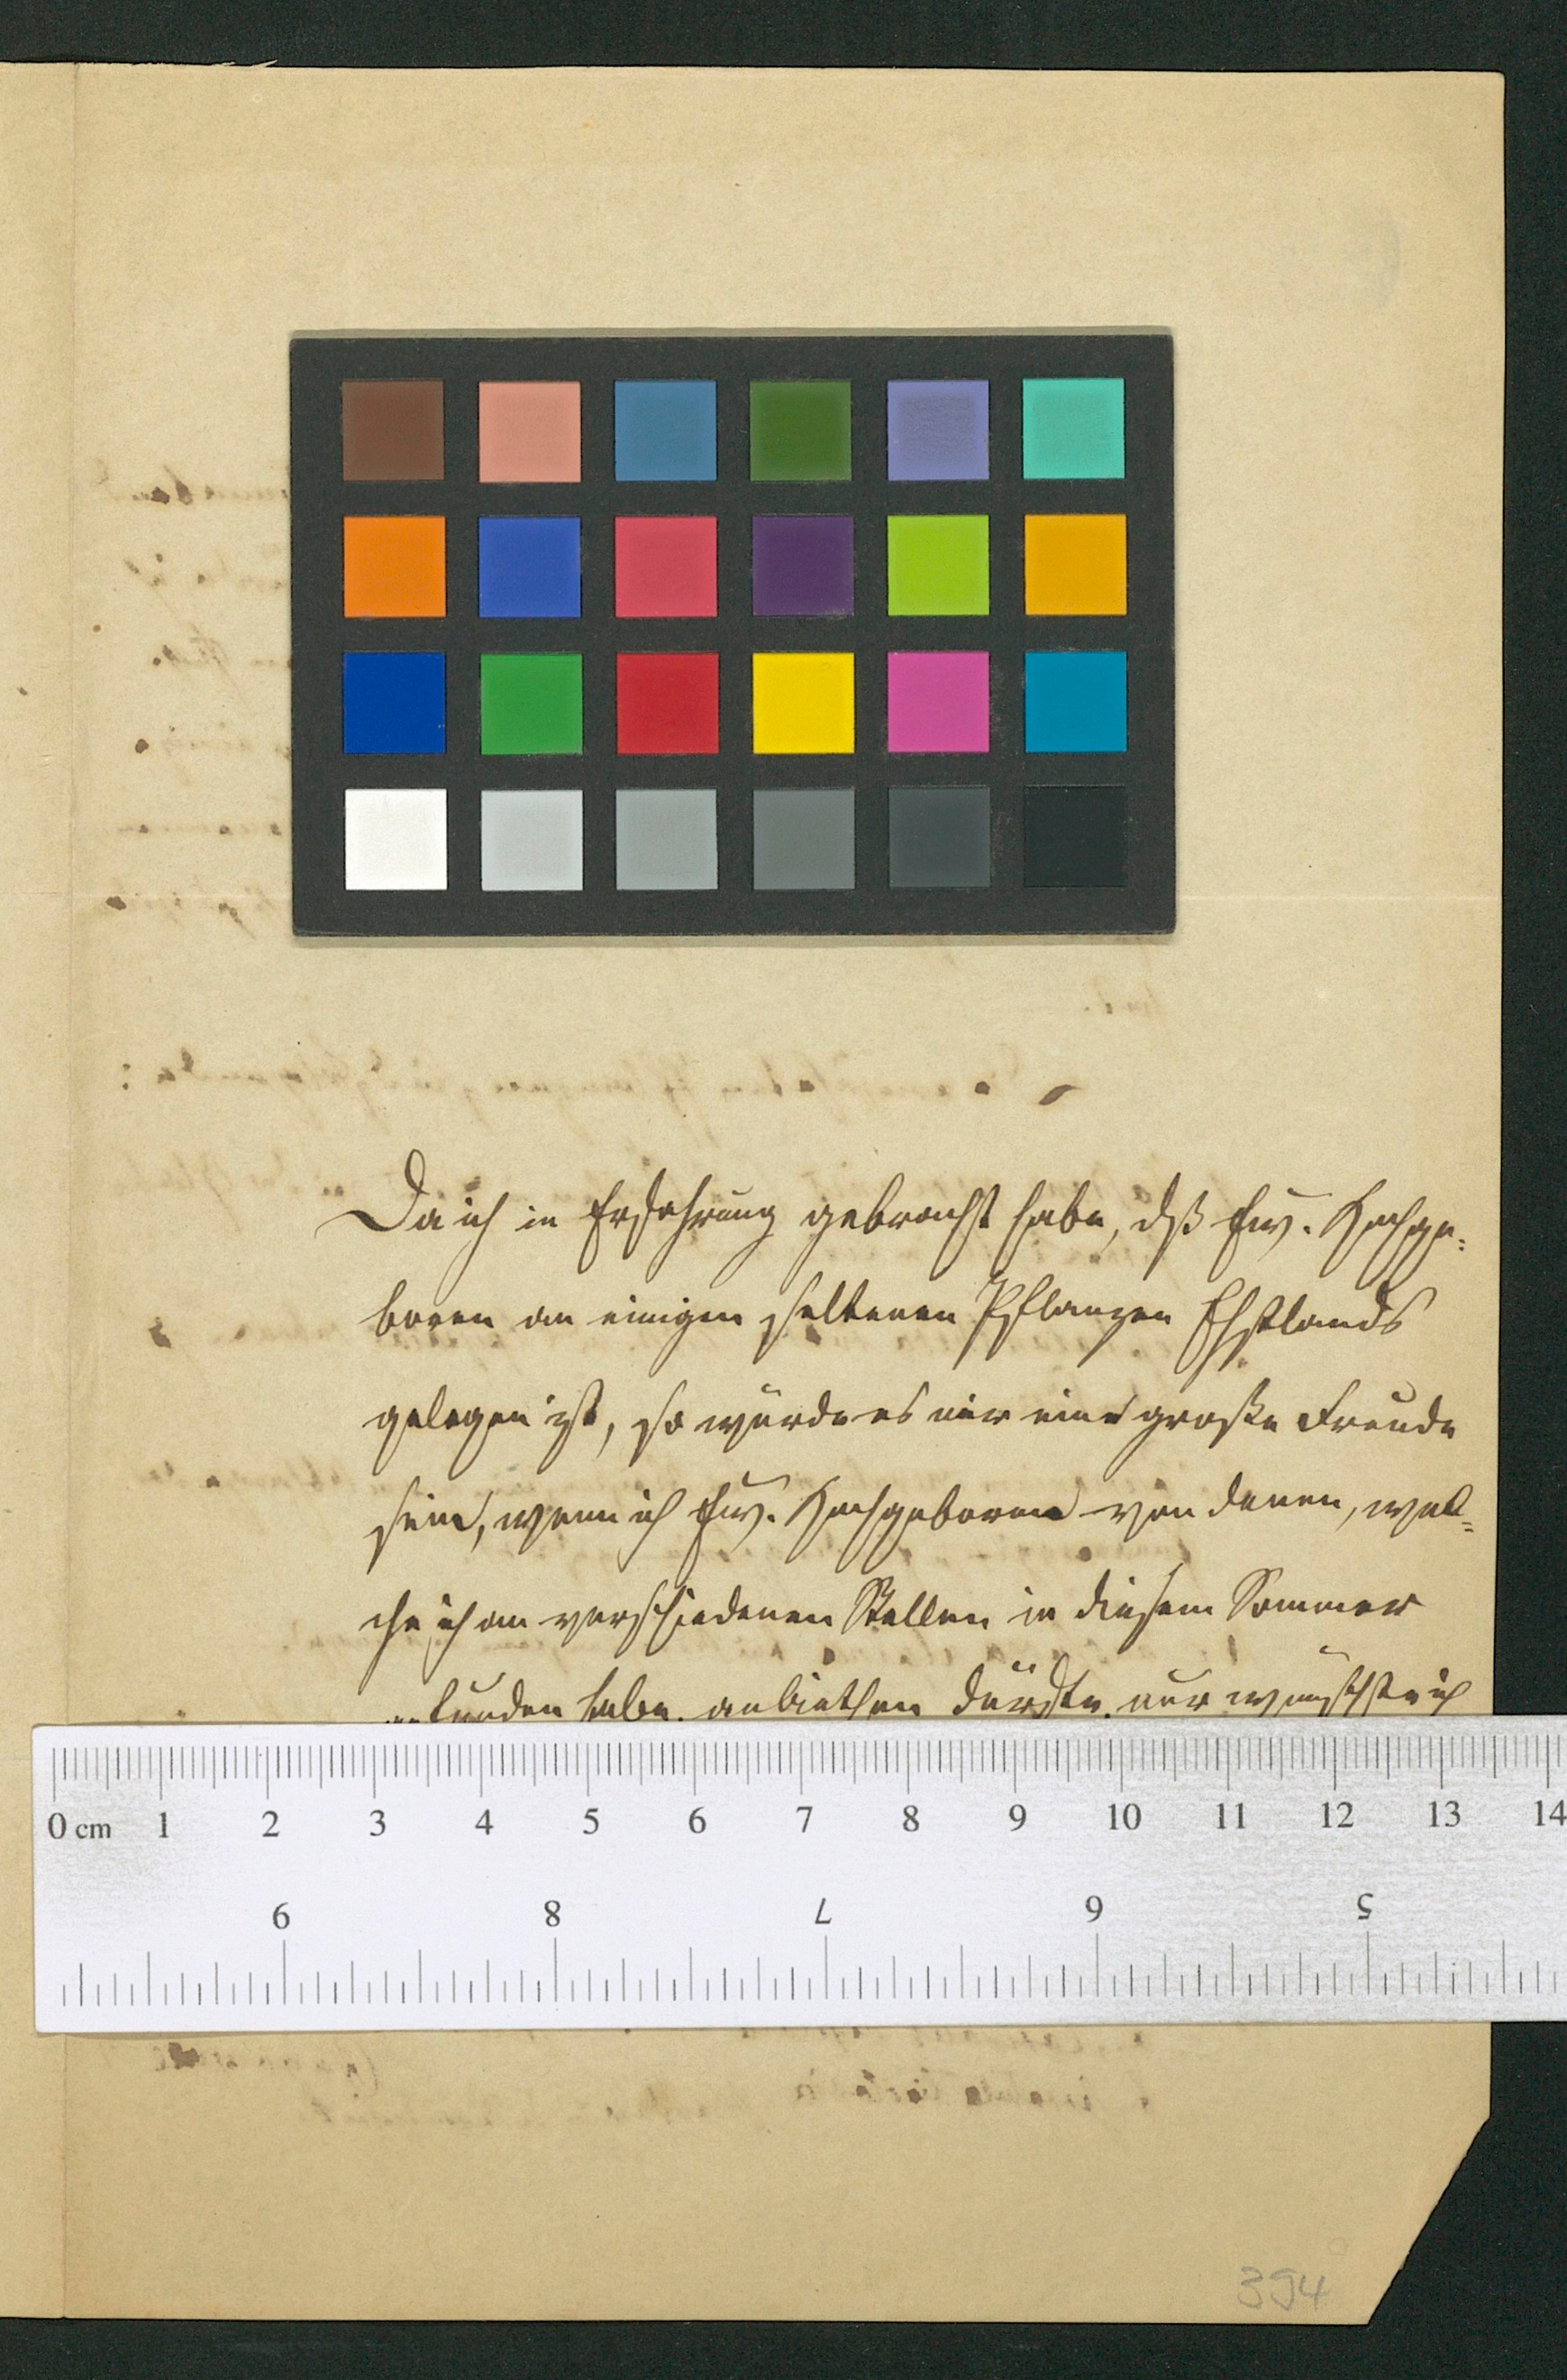 Da ich in Erfahrung gebracht habe, dß Ew. Hochge-
boren an einigen seltenen Pflanzen Ehstlands
gelegen ist, so würde es mir eine große Freude
sein, wenn ich Ew. Hochgeboren von denen, wel-
che ich an verschiedenen Stellen in diesem Sommer
gefunden habe, anbiethen dürfte, nur wünschte ich
0 cm 1 2 3 4 5 6 7 8 9 10 11 12 13 14
9 8 7 6 5
394